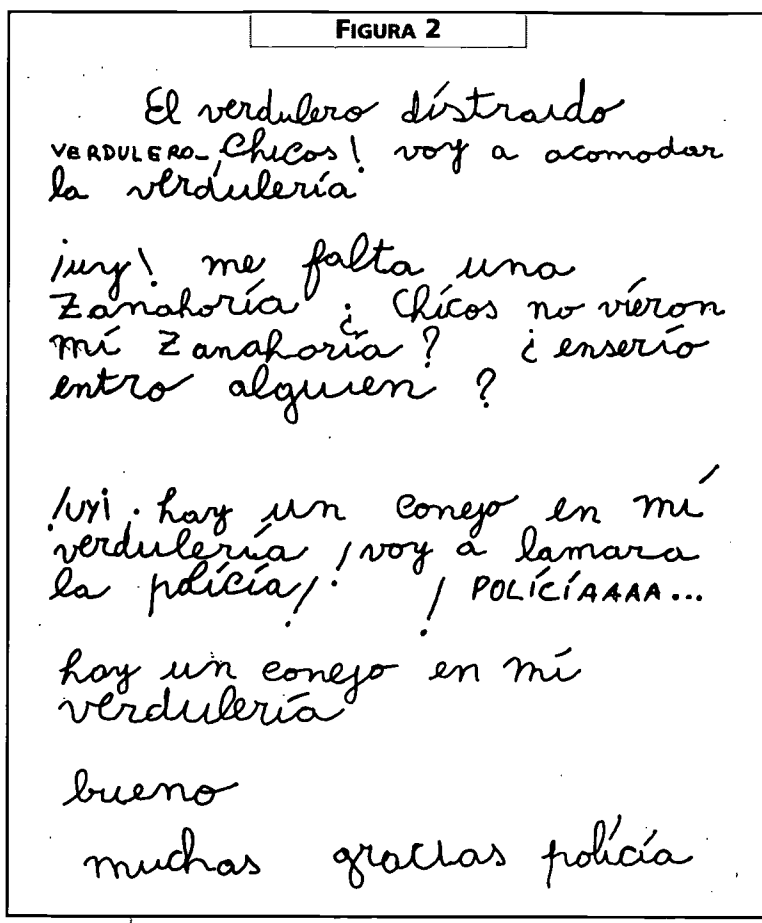 FIGURA 2
El verdulero dístraido
VERDULERO_ ¡Chicos! voy a acomodar
la verdulería
¡uy! me falta una
Zanahoría ¿ Chícos no víeron
mí Zanahoría? ¿ enserío
entro alguien ?
¡uyi. hay un conejo en mí
verdulería ¡voy a lamara
la polícía! ¡ POLÍCÍAAAA...
hay un conejo en mí
verdulería
bueno
muchas gracias polícía